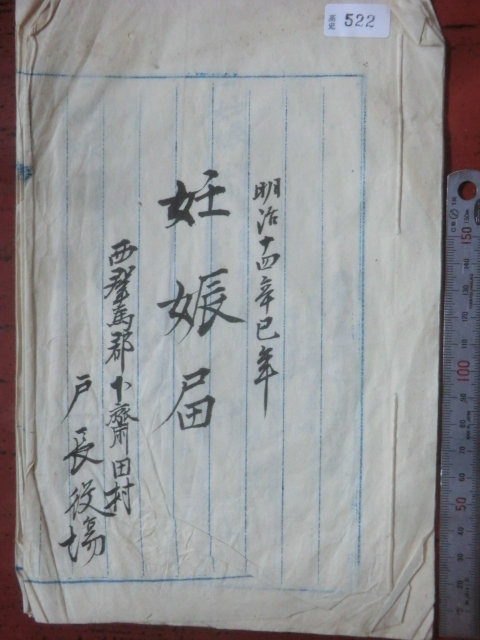 522
明治十四辛巳年
妊娠届
西群馬郡下齋田村
戸長役場
150
100
50